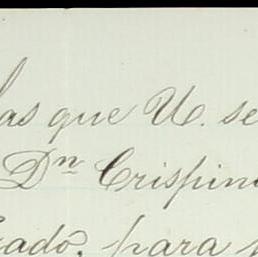 las que U. se
Dn Crispin
para